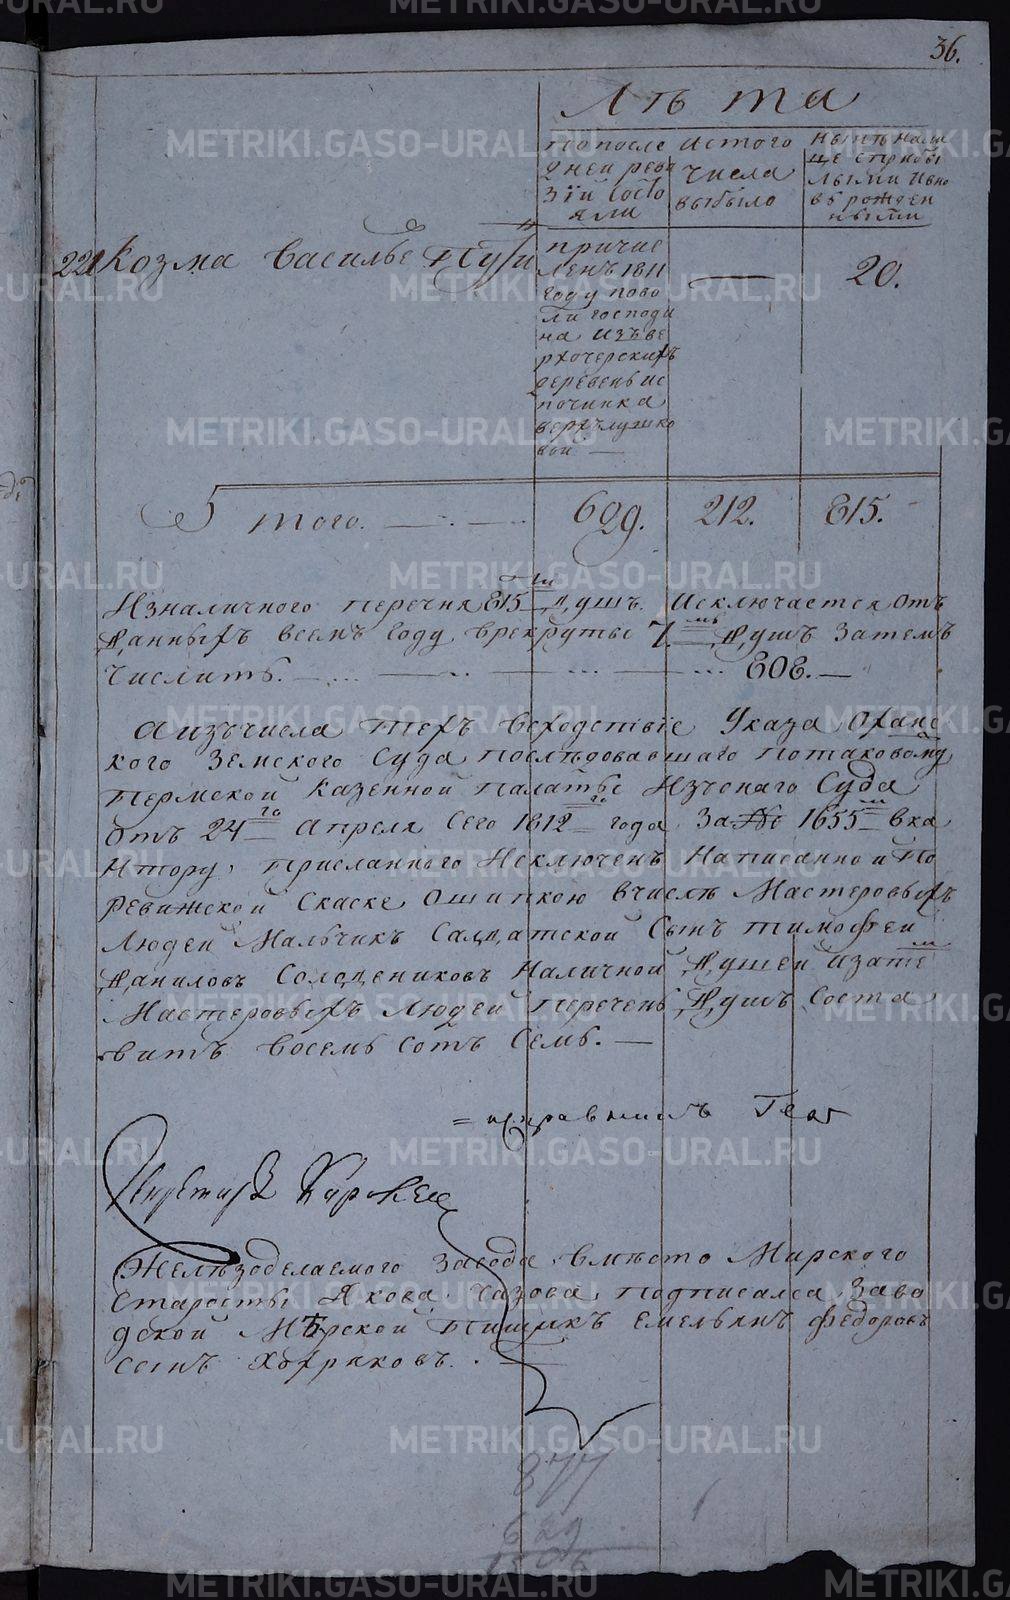 36.
Лѣта
попосле
дней реви
зіи состо
яли
истого
числа
выбыло
нынѣ нали
це сприбы
лыми ивно
вѣ рожден
ными
221 Козма Василье
причис
ленъ 1811
году пово
ли господи
на изъ ве
рхочерскихъ
деревень ис
починка
верхълушко
вой —
—
20.
Итого. 629. 212. 815.
Изналичного перечня 815 ти душъ Исключается отъ
данныхъ всемъ году, врекруты 7. мь душъ затемъ
числитъ. 808. —
Аизъчисла техъ Всходствіе Указа Оханс
кого Земского Суда послѣдовавшаго потаковому
Пермской Казенной палаты Изъонаго Суда
Отъ 24 го апреля сего 1812 го года за № 1655 м вка
нтору, присланного Исключенъ Написанной По
ревижской Скаске Ошипкою вчислѣ Мастеровыхъ
Людей Мальчикъ Салдатской Сынъ Тимофей
Даниловъ Солодениковъ наличной душей изате м
Мастеровыхъ Людей перечень душъ Соста
витъ восемь сотъ семь. —
Желѣзоделаемого завода вмѣсто Мирского
старосты Якова Чазова подписался Заво
дской Мѣрской Пищикъ Емельянъ Федоровъ
сынъ Хохряковъ.
877
629
1506
METRIKI.GASO-URAL.RU